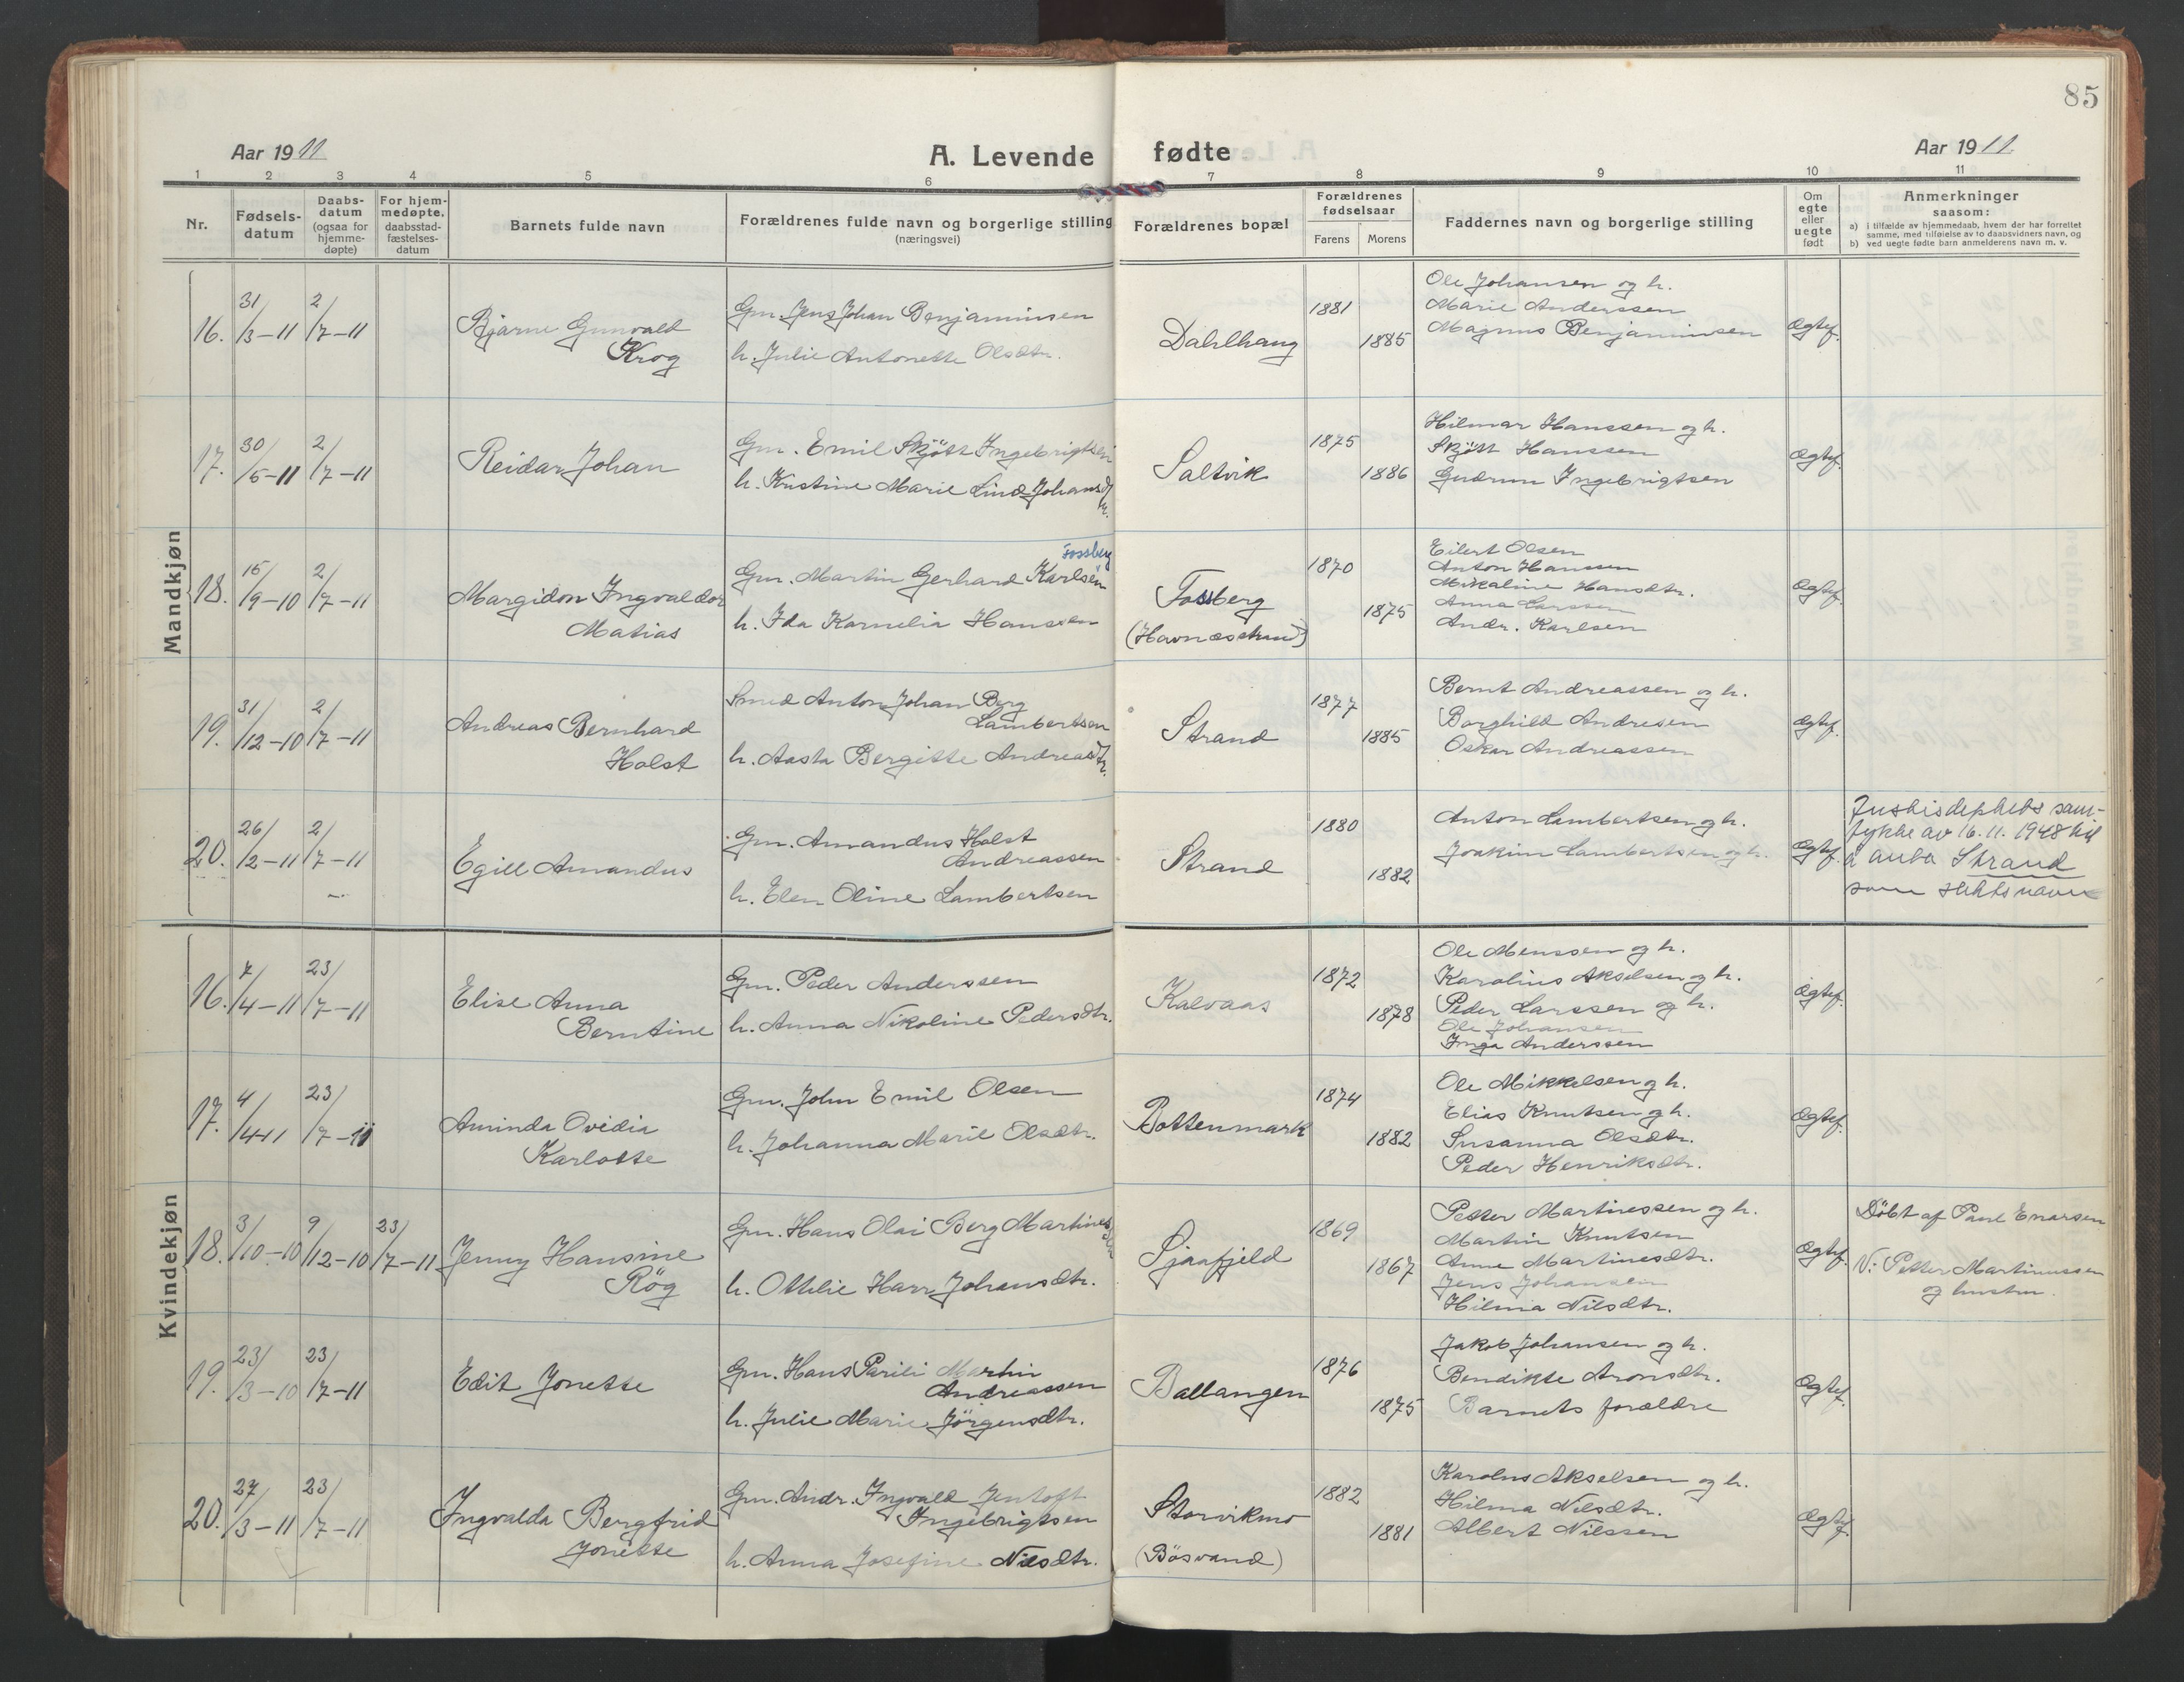 85
Aar 1911
A. Levende fødte
Aar 1911
1 2 3 4 5 6 7 8 9 10 11
Nr.
Fødsels-
datum
Daabs-
datum
(ogsaa for
hjemme-
døpte)
For hjem-
medøpte,
daabsstad-
fæstelses-
datum
Barnets fulde navn
Forældrenes fulde navn og borgerlige stilling
(næringsvei)
Forældrenes bopæl
Forældrenes
fødselsaar
Farens Morens
Faddernes navn og borgerlige stilling
Om
egte
eller
uegte
født
Anmerkninger
saasom:
a) i tilfælde av hjemmedaab, hvem der har forrettet
samme, med tilføielse av to daabsvidners navn, og
b) ved uegte fødte barn anmelderens navn m. v.
Mandkjøn
16. 31/3-11 2/7-11
Bjarne Gunvald
Krog
Gm. Jens Johan Benjaminsen
h. Julie Antonette Olsdtr.
Dahlhaug
1881
1885
Ole Johansen og h.
Marie Anderssen
Magnus Benjaminsen
Ægtef.
17. 30/5-11 2/7-11
Reidar Johan
Gm. Emil Skjött Ingebrigtsen
h. Kristine Marie Lind Johansdtr.
Saltvik
1875
1886
Hilmar Hanssen og h.
Skjött Hanssen
Gudrun Ingebrigtsen
Ægtef.
18. 15/9-10 2/7-11
Margidon Ingvaldor
Matias
Fossberg
Gm. Martin Gerhard Karlsen
h. Ida Kornelia Hanssen
Fossberg
(Havnæsstrand)
1870
1875
Eilert Olsen
Anton Hanssen
Mikaline Hansdtr.
Anna Larssen
Andr. Karlsen
Ægtef.
19. 31/12-10 2/7-11
Andreas Bernhard
Holst
Smed Anton Johan Berg
Lambertsen
h. Aasta Bergitte Andreasdtr.
Strand
1877
1885
Bernt Andreassen og h.
Borghild Andresen
Oskar Andreassen
Ægtef.
20. 26/2-11 2/7-11
Egill Amandus
Gm. Amandus Holst
Andreassen
h. Elen Oline Lambertsen
Strand
1880
1882
Anton Lambertsen og h.
Joakim Lambertsen og h.
Ægtef.
Justisdeptets sam-
tykke av 16.11.1948 til
å anta Strand
som slektsnavn
Kvindekjøn
16. 7/4-11 23/7-11
Elise Anna
Berntine
Gm. Peder Anderssen
h. Anna Nikoline Pedersdtr.
Kalvaas
1872
1878
Ole Menssen og h.
Karolius Akselsen og h.
Peder Larssen og h.
Ole Johansen
Inga Anderssen
Ægtef.
17. 4/4-11 23/7-11
Aminda Ovidia
Karlotte
Gm. John Emil Olsen
h. Johanna Marie Olsdtr.
Bottenmark
1874
1882
Ole Mikkelsen og h.
Elias Knutsen og h.
Susanna Olsdtr.
Peder Henriksdtr.
Ægtef.
18. 3/10-10 9/12-10 23/7-11
Jenny Hansine
Røg
Gm. Hans Olai Berg Martinessen
h. Ottilie Harr Johansdtr.
Sjaafjeld
1869
1867
Petter Martinessen og h.
Martin Knutsen
Anne Martinesdtr.
Jens Johansen
Hilma Nilsdtr.
Ægtef.
Döbt af Paul Enarsen
V: Petter Martinussen
og hustru.
19. 23/3-10 23/7-11
Edit Jonette
Gm. Hans Parili Martin
Andreassen
h. Julie Marie Jörgensdtr.
Ballangen
1876
1875
Jakob Johansen og h.
Bendikte Aronsdtr.
Barnets forældre
Ægtef.
20. 27/3-11 23/7-11
Ingvalda Bergfrid
Jonette
Gm. Andr. Ingvald Jentoft
Ingebrigtsen
h. Anna Josefine Nilsdtr.
Storvikmo
(Bösvand)
1882
1881
Karolus Akselsen og h.
Hilma Nilsdtr.
Albert Nilssen
Ægtef.